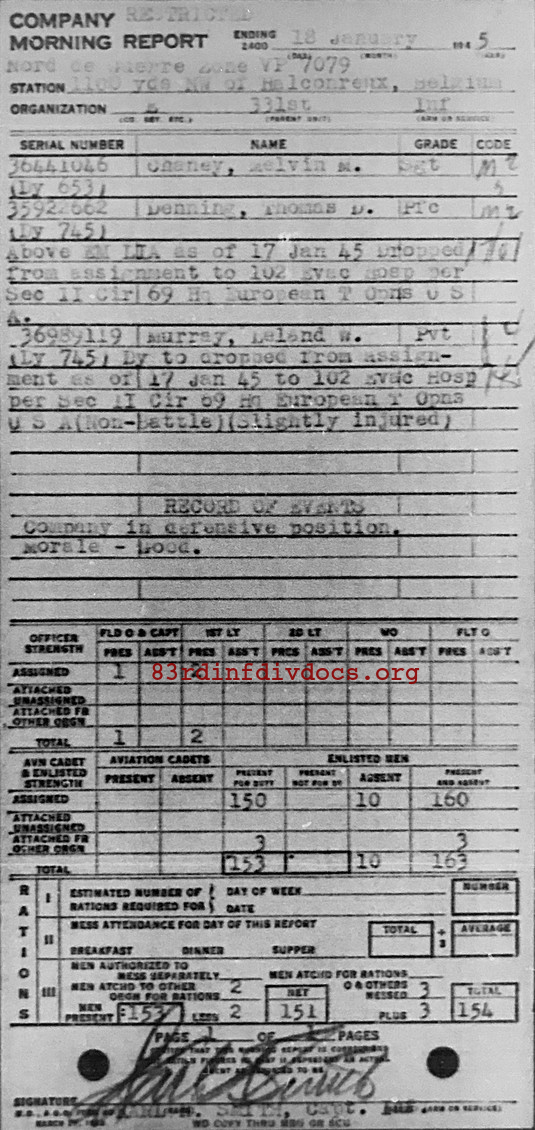 COMPANY RESTRICTED
MORNING REPORT ENDING 2400 18 January 194 5
Nord de Guerre Zone VP 7079
STATION 1100 yds NW of Halconreux, Belgium
ORGANIZATION 331st Inf
(CO. BET. ETC.) (PARENT UNIT) (ARM OR SERVICE)
SERIAL NUMBER NAME GRADE CODE
36441046 Chaney, Melvin M. Sgt
(Dy 653)
35922662 Denning, Thomas D. Pfc
(Dy 745)
Above EM LIA as of 17 Jan 45 Dropped
from assignment to 102 Evac Hosp per
Sec II Cir 69 Hq European T Opns U S
A.
36989119 Murray, Leland W. Pvt
(Dy 745) Dy to dropped from assign-
ment as of 17 Jan 45 to 102 Evac Hosp
per Sec II Cir 69 Hq European T Opns
U S A(Non-battle)(Slightly injured)
RECORD OF EVENTS
Company in defensive position.
Morale - Good.
OFFICER STRENGTH FLD O & CAPT 1ST LT 2D LT WO FLT O
PRES ABS'T PRES ABS'T PRES ABS'T PRES ABS'T PRES ABS'T
ASSIGNED 1 2
83rdinfdivdocs.org
ATTACHED UNASSIGNED
ATTACHED FR OTHER ORGN
TOTAL 1 2
AVN CADET & ENLISTED STRENGTH AVIATION CADETS ENLISTED MEN
PRESENT ABSENT PRESENT FOR DUTY PRESENT NOT FOR DY ABSENT PRESENT AND ABSENT
ASSIGNED 150 10 160
ATTACHED UNASSIGNED
ATTACHED FR OTHER ORGN 3 3
TOTAL 153 10 163
RATIONS
I ESTIMATED NUMBER OF RATIONS REQUIRED FOR DAY OF WEEK DATE NUMBER
II MESS ATTENDANCE FOR DAY OF THIS REPORT TOTAL ÷ 3 AVERAGE
BREAKFAST DINNER SUPPER
III MEN AUTHORIZED TO MESS SEPARATELY MEN ATCHD FOR RATIONS
MEN ATCHD TO OTHER ORGN FOR RATIONS 2 NET O & OTHERS MESSED 3 TOTAL
MEN PRESENT 153 LESS 2 151 PLUS 3 154
PAGE 1 OF PAGES
SIGNATURE
SMITH, Capt. (ARM OR SERVICE)